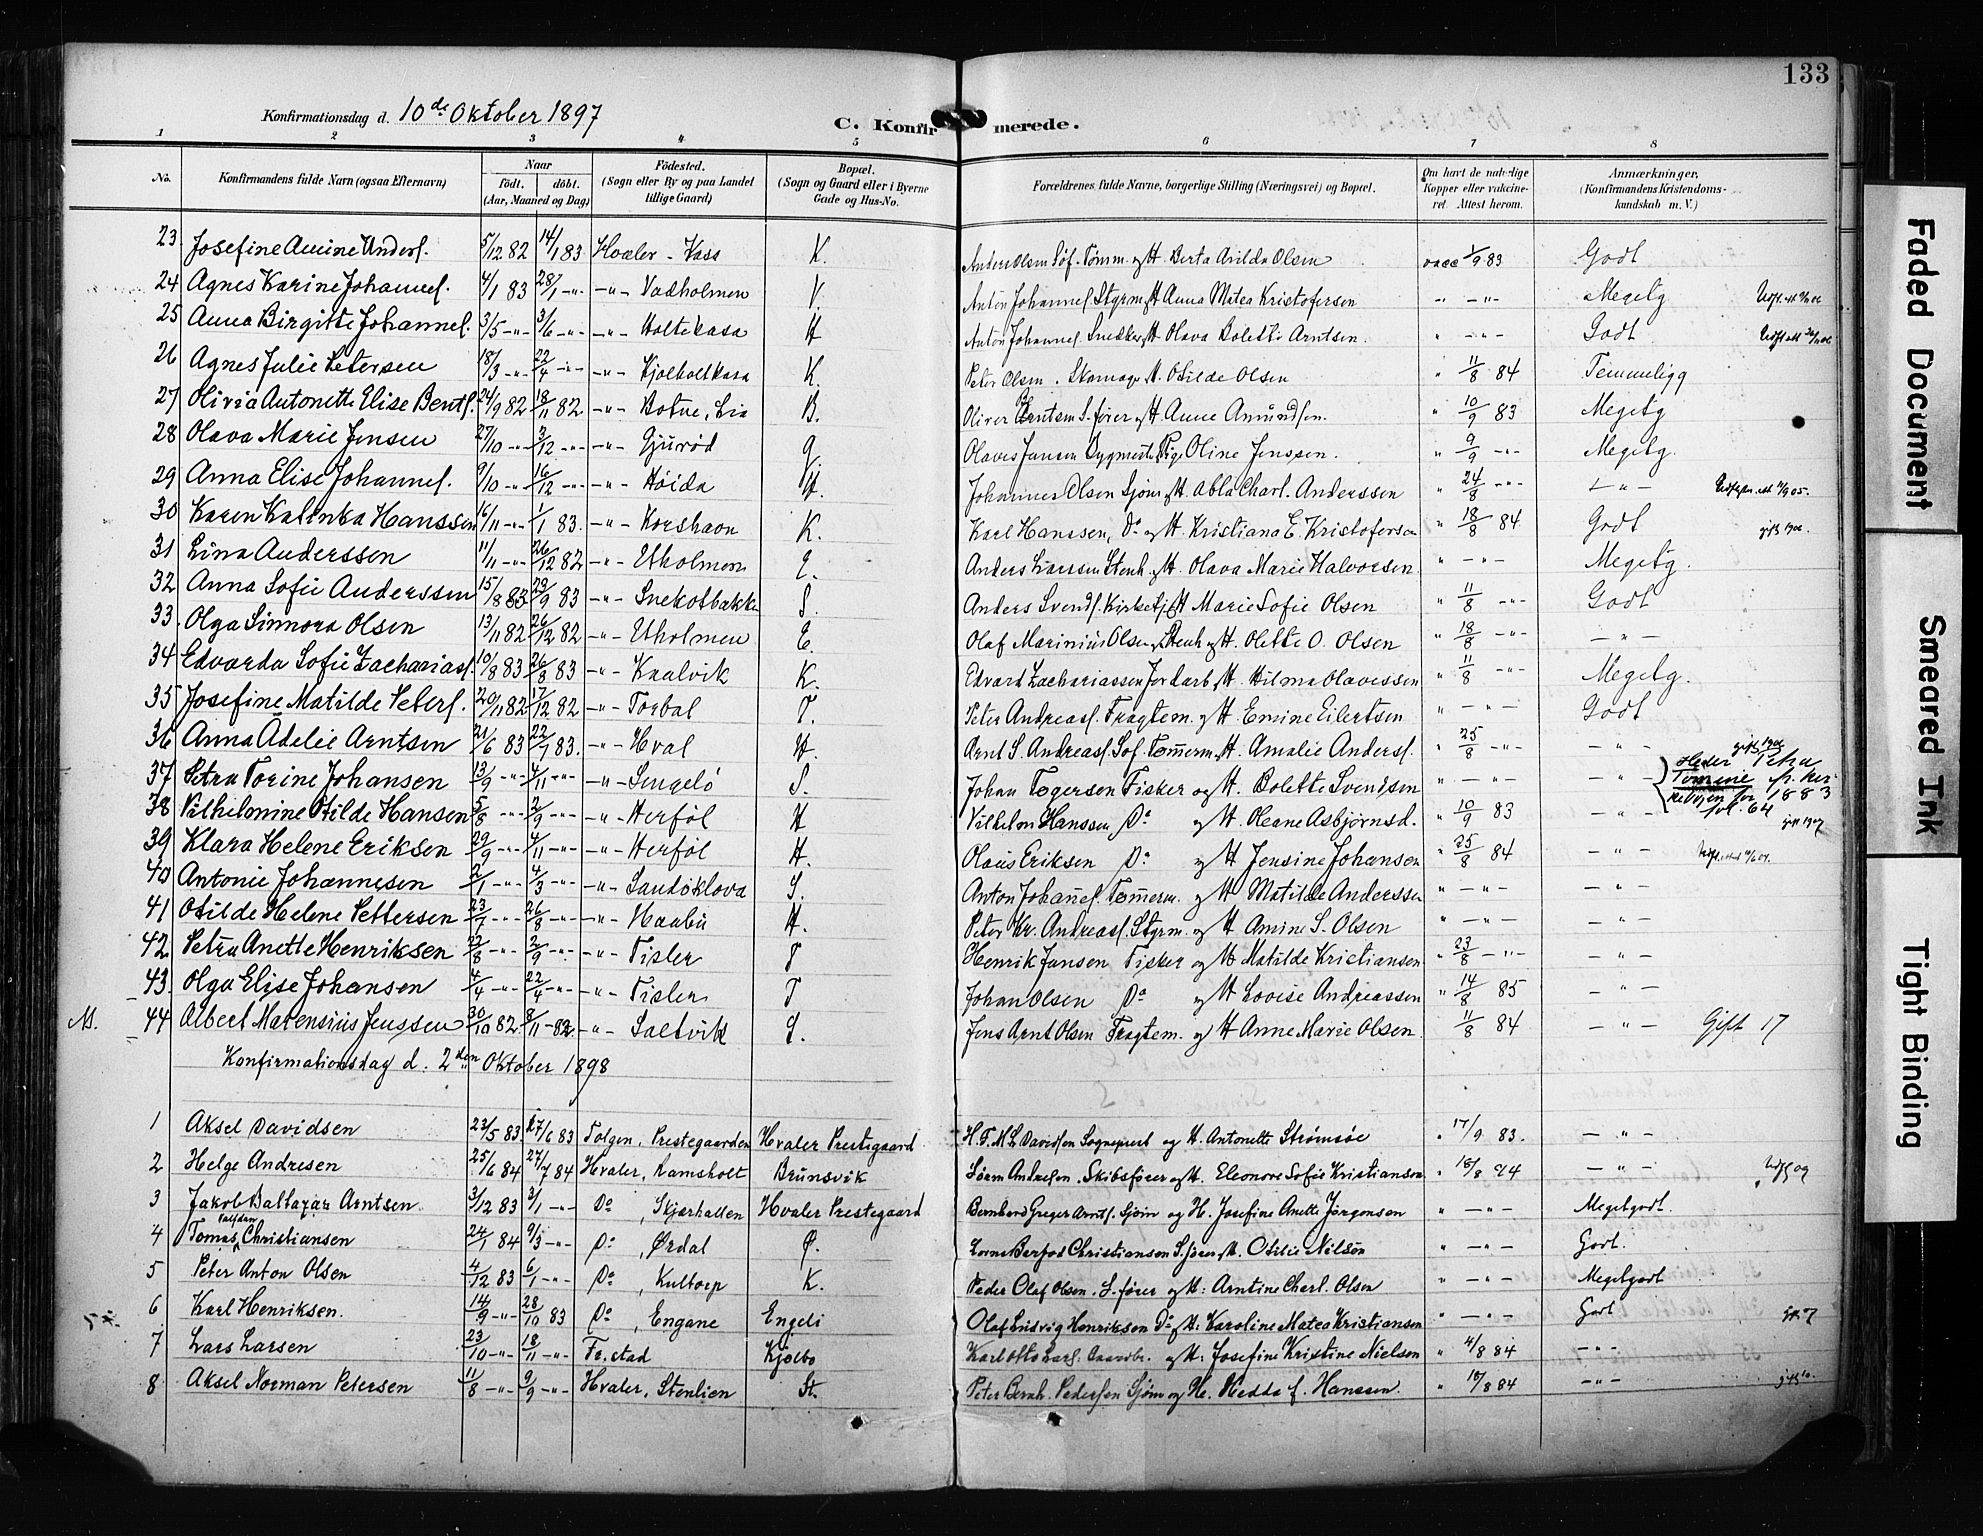 133
Konfirmationsdag d. 10de Oktober 1897
C. Konfirmerede.
1 2 3 4 5 6 7 8
No. Konfirmandens fulde Navn (ogsaa Efternavn) Naar födt. döbt. (Aar, Maaned og Dag) Födested. (Sogn eller By og paa Landet tillige Gaard) Bopæl. (Sogn og Gaard eller i Byerne Gade og Hus-No. Forældrenes fulde Navne, borgerlige Stilling (Næringsvei) og Bopæl. Om havt de naturlige Kopper eller vakcineret. Attest herom. Anmærkninger. (Konfirmandens Kristendomskundskab m. V.)
23. Josefine Amine Anders. 5/12 82 14/1 83 Hvaler - Kass K. Anders Olsen Søf. Tømm. og H. Berta Arilda Olsen vacc 1/9 83 Godt
24 Agnes Karine Johannes. 4/1 83 28/1 -"- -"- Vadholmen V Anton Johannes. Styrm. og H Anna Matea Kristofersen -"- -"- Megetg
25 Anna Birgitte Johannes. 3/5 -"- 3/6 -"- -"- Holtekasa H Anton Johannes. Snedker og H Olava Bolette Arntsen. " -"- Godt
26 Agnes Julie Petersen 18/3 -"- 22/4 -"- -"- Kjolholtkasa K. Peter Olsen. Skomager H. Otilde Olsen " 11/8 84 Temmeligg
27 Olivia Antonette Elise Bents. 24/9 82 18/11 82 -"- Botne, Lia B. Oliver Berntsen S.fører og H. Anne Amundsen. " 10/9 83 Megetg
28 Olava Marie Jensen 27/10 -"- 3/12 -"- -"- Gjurød G. Olaves Jansen Bygmester, Pige Oline Jenssen. " 9/9 -"- Megetg.
29 Anna Elise Johannes. 9/10 -"- 16/12 -"- -"- Höida H. Johannes Olsen Sjøm. og H. Abla Charl. Anderssen " 24/8 -"- -"-
30 Karen Kalinka Hanssen 16/11 -"- 1/1 83. -"- Korshavn K. Karl Hanssen, Do og H. Kristiana E. Kristofersen " 18/8 84 Godt gift 1906.
31 Lina Anderssen 11/11 -"- 26/12 82 -"- Eholmen E. Anders Larssen Stenh. og H. Olava Marie Halvorsen. " -"- Megetg.
32 Anna Sofie Anderssen 15/8 83 23/9 83 -"- Snekotbakk. S. Anders Svends. Kirketj. H Marie Sofie Olsen " 11/8 -"- Godt
33. Olga Sinnora Olsen 13/11 82 26/12 82 -"- Eholmen E. Olaf Marinius Olsen Stenh og H. Olette O. Olsen " 18/8 -"- -"-
34 Edvarda Sofie Zacharias. 10/8 83 26/8 83 -"- Kaalvik K. Edvard Zachariassen Jordarb. og H. Hilma Olavessen " 11/8 -"- Megetg.
35 Josefine Matilde Peters. 20/11 82 17/12 82 -"- Torbal T. Peter Andreas. Fragtem. og H. Emine Eilertsen " -"- Godt
36 Anna Adelie Arntsen 21/6 83 22/7 83. -"- Hval H. Arnt S. Andreas. Søf. Tømmerm. H. Amalie Anders. " 25/8 -"- -"- gift 1906
37 Petra Torine Johansen 13/9 -"- 4/11 -"- -"- Sengelö S. Johan Togersen Fisker og H. Bolette Svendsen " -"- -"- Heder Petra Tomine fr. kirkebogen for 1883 fol. 64
38 Vilhelmine Otilde Hansen 5/8 -"- 2/9 -"- -"- Herföl H Vilhelm Hanssen Do og H. Oleane Asbjørnsd. " 10/9 83 -"- gift 1907
39 Klara Helene Eriksen 29/9 -"- 4/11 -"- -"- Herföl H. Olaus Eriksen Do og H Jensine Johansen " 25/8 84 -"-
40 Antonie Johannesen 2/1 -"- 4/3 -"- -"- Sandöklova S. Anton Johannes. Tømmerm. og H Matilde Anderssen " -"- -"-
41 Otilde Helene Pettersen 23/7 -"- 26/8 -"- -"- Haabu H. Peter Kr. Andreas. Styrm. og H Amine S. Olsen " -"- -"-
42 Petra Anette Henriksen 22/8 -"- 2/9 -"- -"- Tisler T Henrik Jansen Fisker og H Matilde Kristiansen " 23/8 -"- -"-
43. Olga Elise Johansen 4/4 -"- 22/4 -"- -"- Tisler T Johan Olsen Do og H Lovise Andreassen " 14/8 85 -"-
M. 44 Albert Marensius Jenssen 30/10 82 8/11 -82 -"- Saltvik S. Jens Arnt Olsen Fragtem. og H Anne Marie Olsen. " 11/8 84 -"- Gift 17
Konfirmationsdag d. 2den Oktober 1898
1 Aksel Davidsen 23/5 83. 17/6 83 Tolgen, Prestegaarden Hvaler Prestegaard H. F. M. L. Davidsen Sogneprest og H. Antonette Strømsøe " 17/9 83. -"-
2 Helge Andresen 25/6 84 27/7 84 Hvaler, Ramsholt Brunsvik Søren Andresen. Skibsfører og H. Eleonore Sofie Kristiansen " 18/8 94 -"- Udfl 09
3 Jakob Baltazar Arntsen. 3/12 83 3/1 -"- Do, Skjærhallen Hvaler Prestegaard Bernhard Greger Arnts. Sjöm og H. Josefine Anette Jörgensen " -"- Megetgodt.
4 Tomas Falfdan Christiansen 24/1 84 9/3 -"- Do, Ørdal Ø. Lorns Berfod Christiansen S.fører og H. Otilie Nilsen " -"- Godt.
5 Peter Anton Olsen 4/12 83 6/1 -"- Do, Kultorp K. Peder Olaf Olsen. S.fører og H: Arntine Charl. Olsen " -"- Megetgodt
6 Karl Henriksen. 14/9 -"- 28/10 83 Do, Engane Engeli Olaf Ludvig Henriksen Do og H: Karoline Matea Kristiansen " -"- Godt
7 Lars Larsen 23/10 -"- 18/11 -"- Fr.stad Kjølbo Karl Otto Lars. og H: Josefine Kristine Nielsen " 4/8 84 -"-
8 Aksel Norman Petersen 11/8 -"- 9/9 -"- Hvaler, Stenlien St. Peter Bernh. Pedersen Sjøm og H. Hedda f. Hanssen. " 18/8 84 -"-
Faded Document
Smeared Ink
Tight Binding